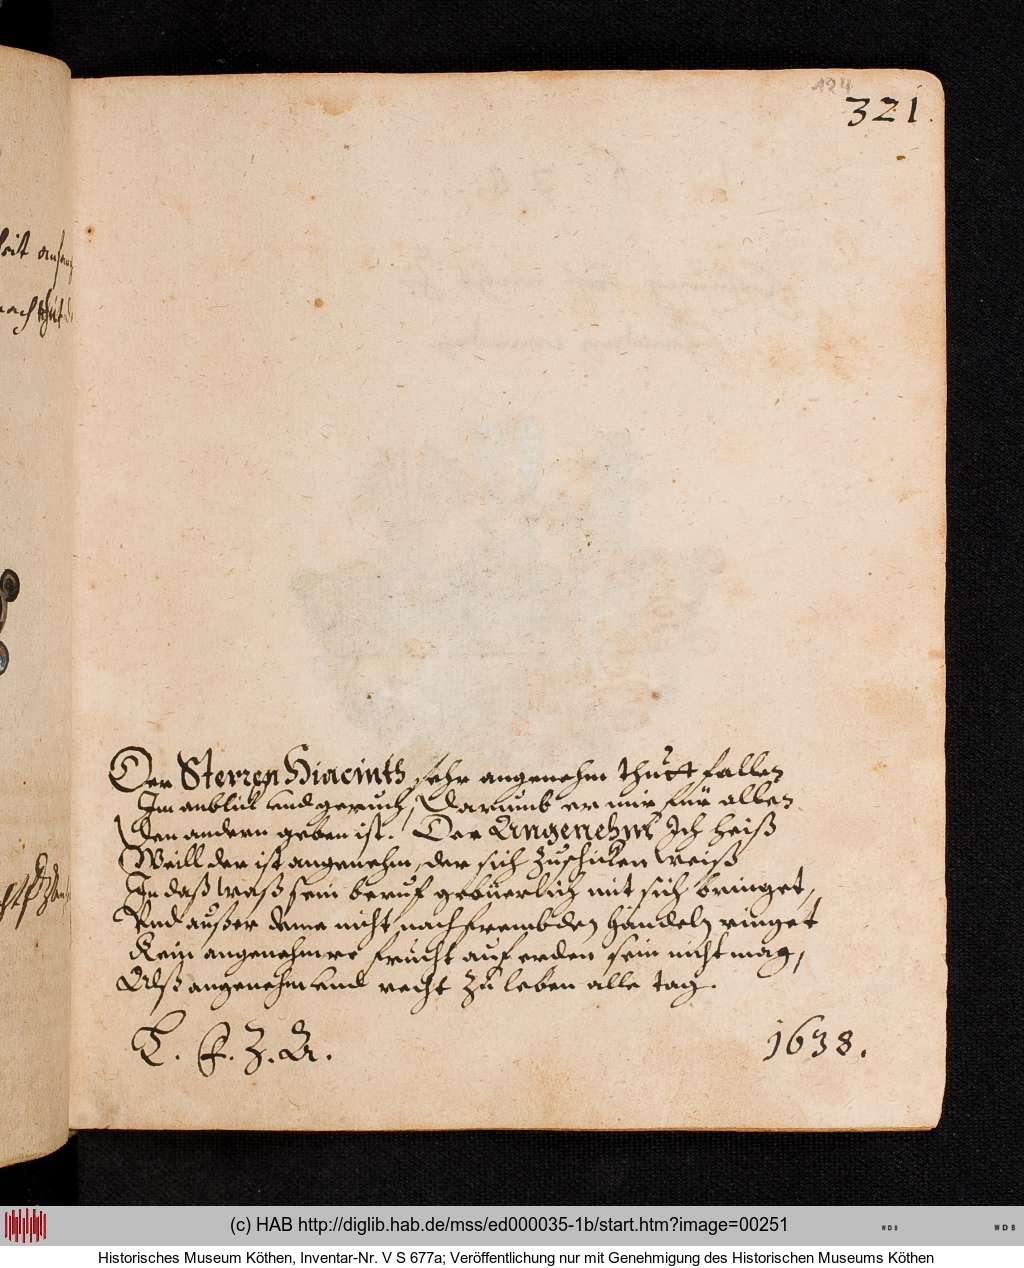 124
321.
Der Sternen Hiacinth sehr angenehm thutt fallen
Im anblick und geruch, darumb er mir für allen
den andern geben ist. Der Angenehm Ich heiß
Weill der ist angenehm, der sich zuschicken weiß
In daß waß sein beruf gebüerlich mit sich bringet,
Und außer deme nicht nach frembden händeln ringet
Kein angenehmre frucht auf erden sein nicht mag,
Alß angenehm und recht zu leben alle tag.
L. F. Z. A.
1638.
(c) HAB http://diglib.hab.de/mss/ed000035-1b/start.htm?image=00251
WDB
WDB
Historisches Museum Köthen, Inventar-Nr. V S 677a; Veröffentlichung nur mit Genehmigung des Historischen Museums Köthen